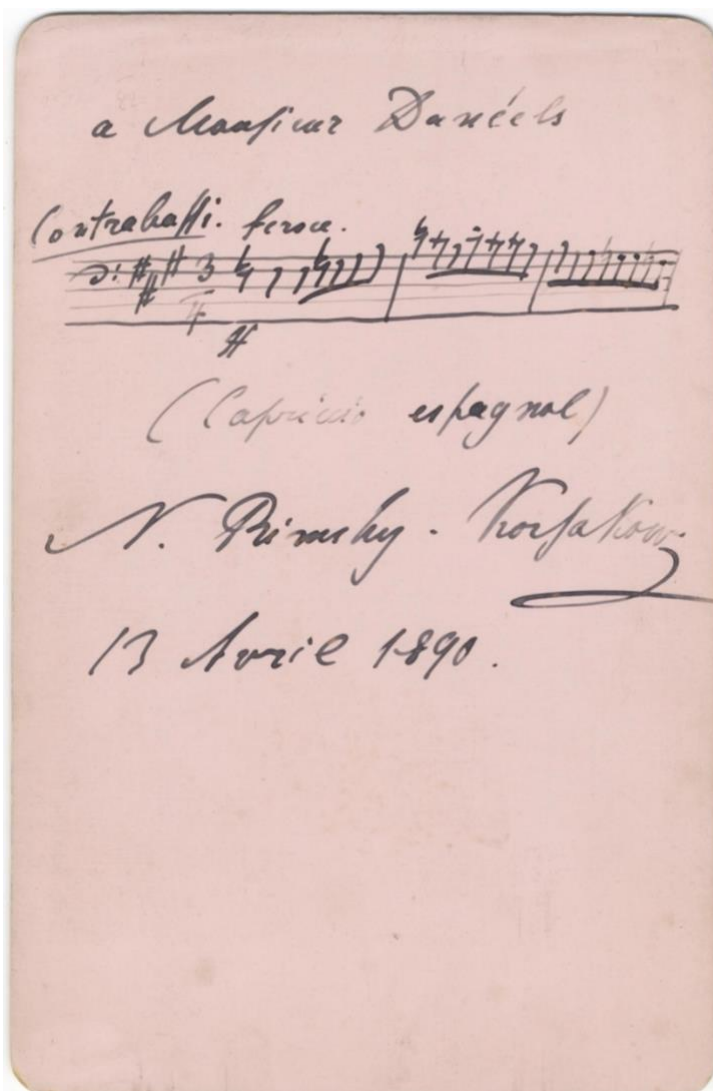 a Monsieur Daneels
Contrabassi. feroce.
3
4
ff
(Capriccio espagnol)
N. Rimsky-Korsakow
13 Avril 1890.